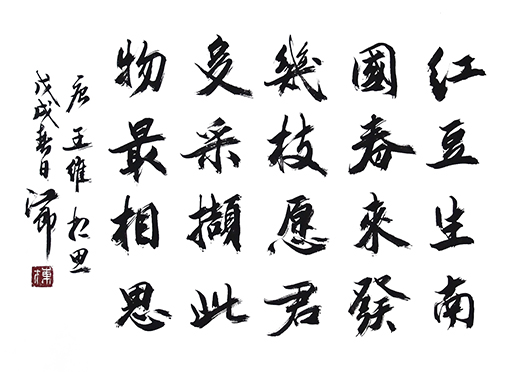 红豆生南
國春來發
幾枝愿君
多采擷此
物最相思
唐王維相思
戊戌春日